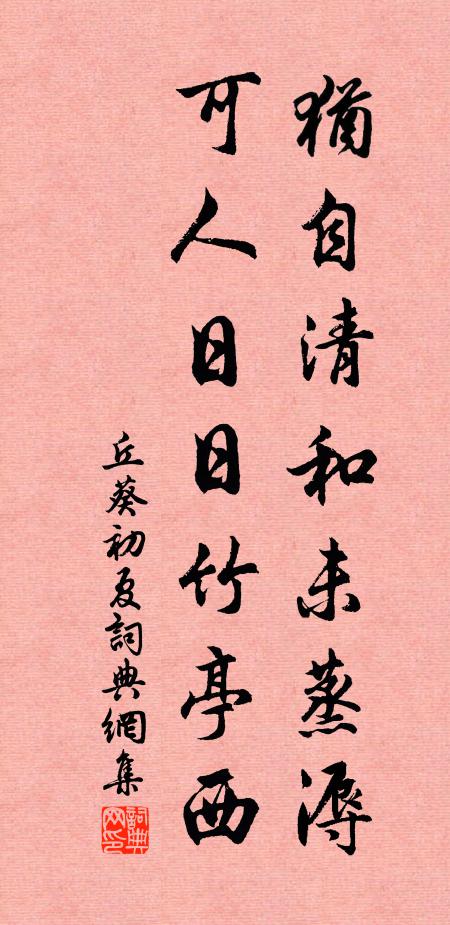 猶自清和未蒸溽
可人日日竹亭西
丘葵初夏詞典網集
詞典网印